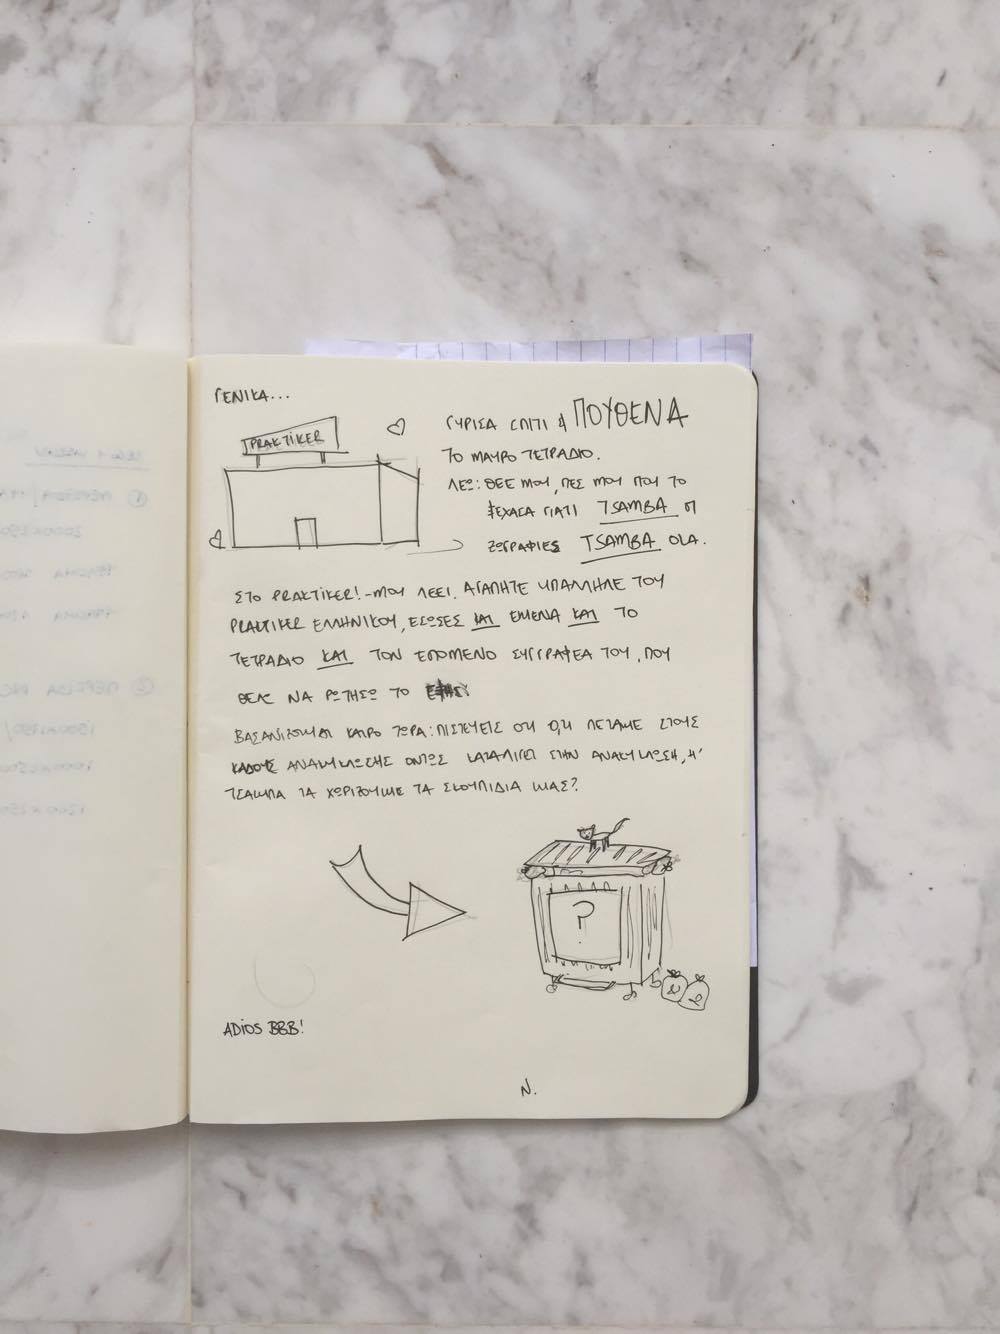 ΓΕΝΙΚΑ...
PRAKTIKER
ΓΥΡΙΣΑ ΣΠΙΤΙ & ΠΟΥΘΕΝΑ
ΤΟ ΜΑΥΡΟ ΤΕΤΡΑΔΙΟ.
ΛΕΩ: ΘΕΕ ΜΟΥ, ΠΕΣ ΜΟΥ ΠΟΥ ΤΟ
ΞΕΧΑΣΑ ΓΙΑΤΙ TSAMBA ΟΙ
ΖΩΓΡΑΦΙΕΣ TSAMBA ΟΛΑ.
ΣΤΟ PRAKTIKER! - ΜΟΥ ΛΕΕΙ. ΑΓΑΠΗΤΕ ΥΠΑΛΛΗΛΕ ΤΟΥ
PRAKTIKER ΕΛΛΗΝΙΚΟΥ, ΕΣΩΣΕΣ ΚΑΙ ΕΜΕΝΑ ΚΑΙ ΤΟ
ΤΕΤΡΑΔΙΟ ΚΑΙ ΤΟΝ ΕΠΟΜΕΝΟ ΣΥΓΓΡΑΦΕΑ ΤΟΥ, ΠΟΥ
ΘΕΛΩ ΝΑ ΡΩΤΗΣΩ ΤΟ
ΒΑΣΑΝΙΖΟΜΑΙ ΚΑΙΡΟ ΤΩΡΑ: ΠΙΣΤΕΥΕΙΣ ΟΤΙ Ο,ΤΙ ΠΕΤΑΜΕ ΣΤΟΥΣ
ΚΑΔΟΥΣ ΑΝΑΚΥΚΛΩΣΗΣ ΟΝΤΩΣ ΚΑΤΑΛΗΓΕΙ ΣΤΗΝ ΑΝΑΚΥΚΛΩΣΗ, Η'
ΤΣΑΜΠΑ ΤΑ ΧΩΡΙΖΟΥΜΕ ΤΑ ΣΚΟΥΠΙΔΙΑ ΜΑΣ?
?
ADIOS BBB!
N.